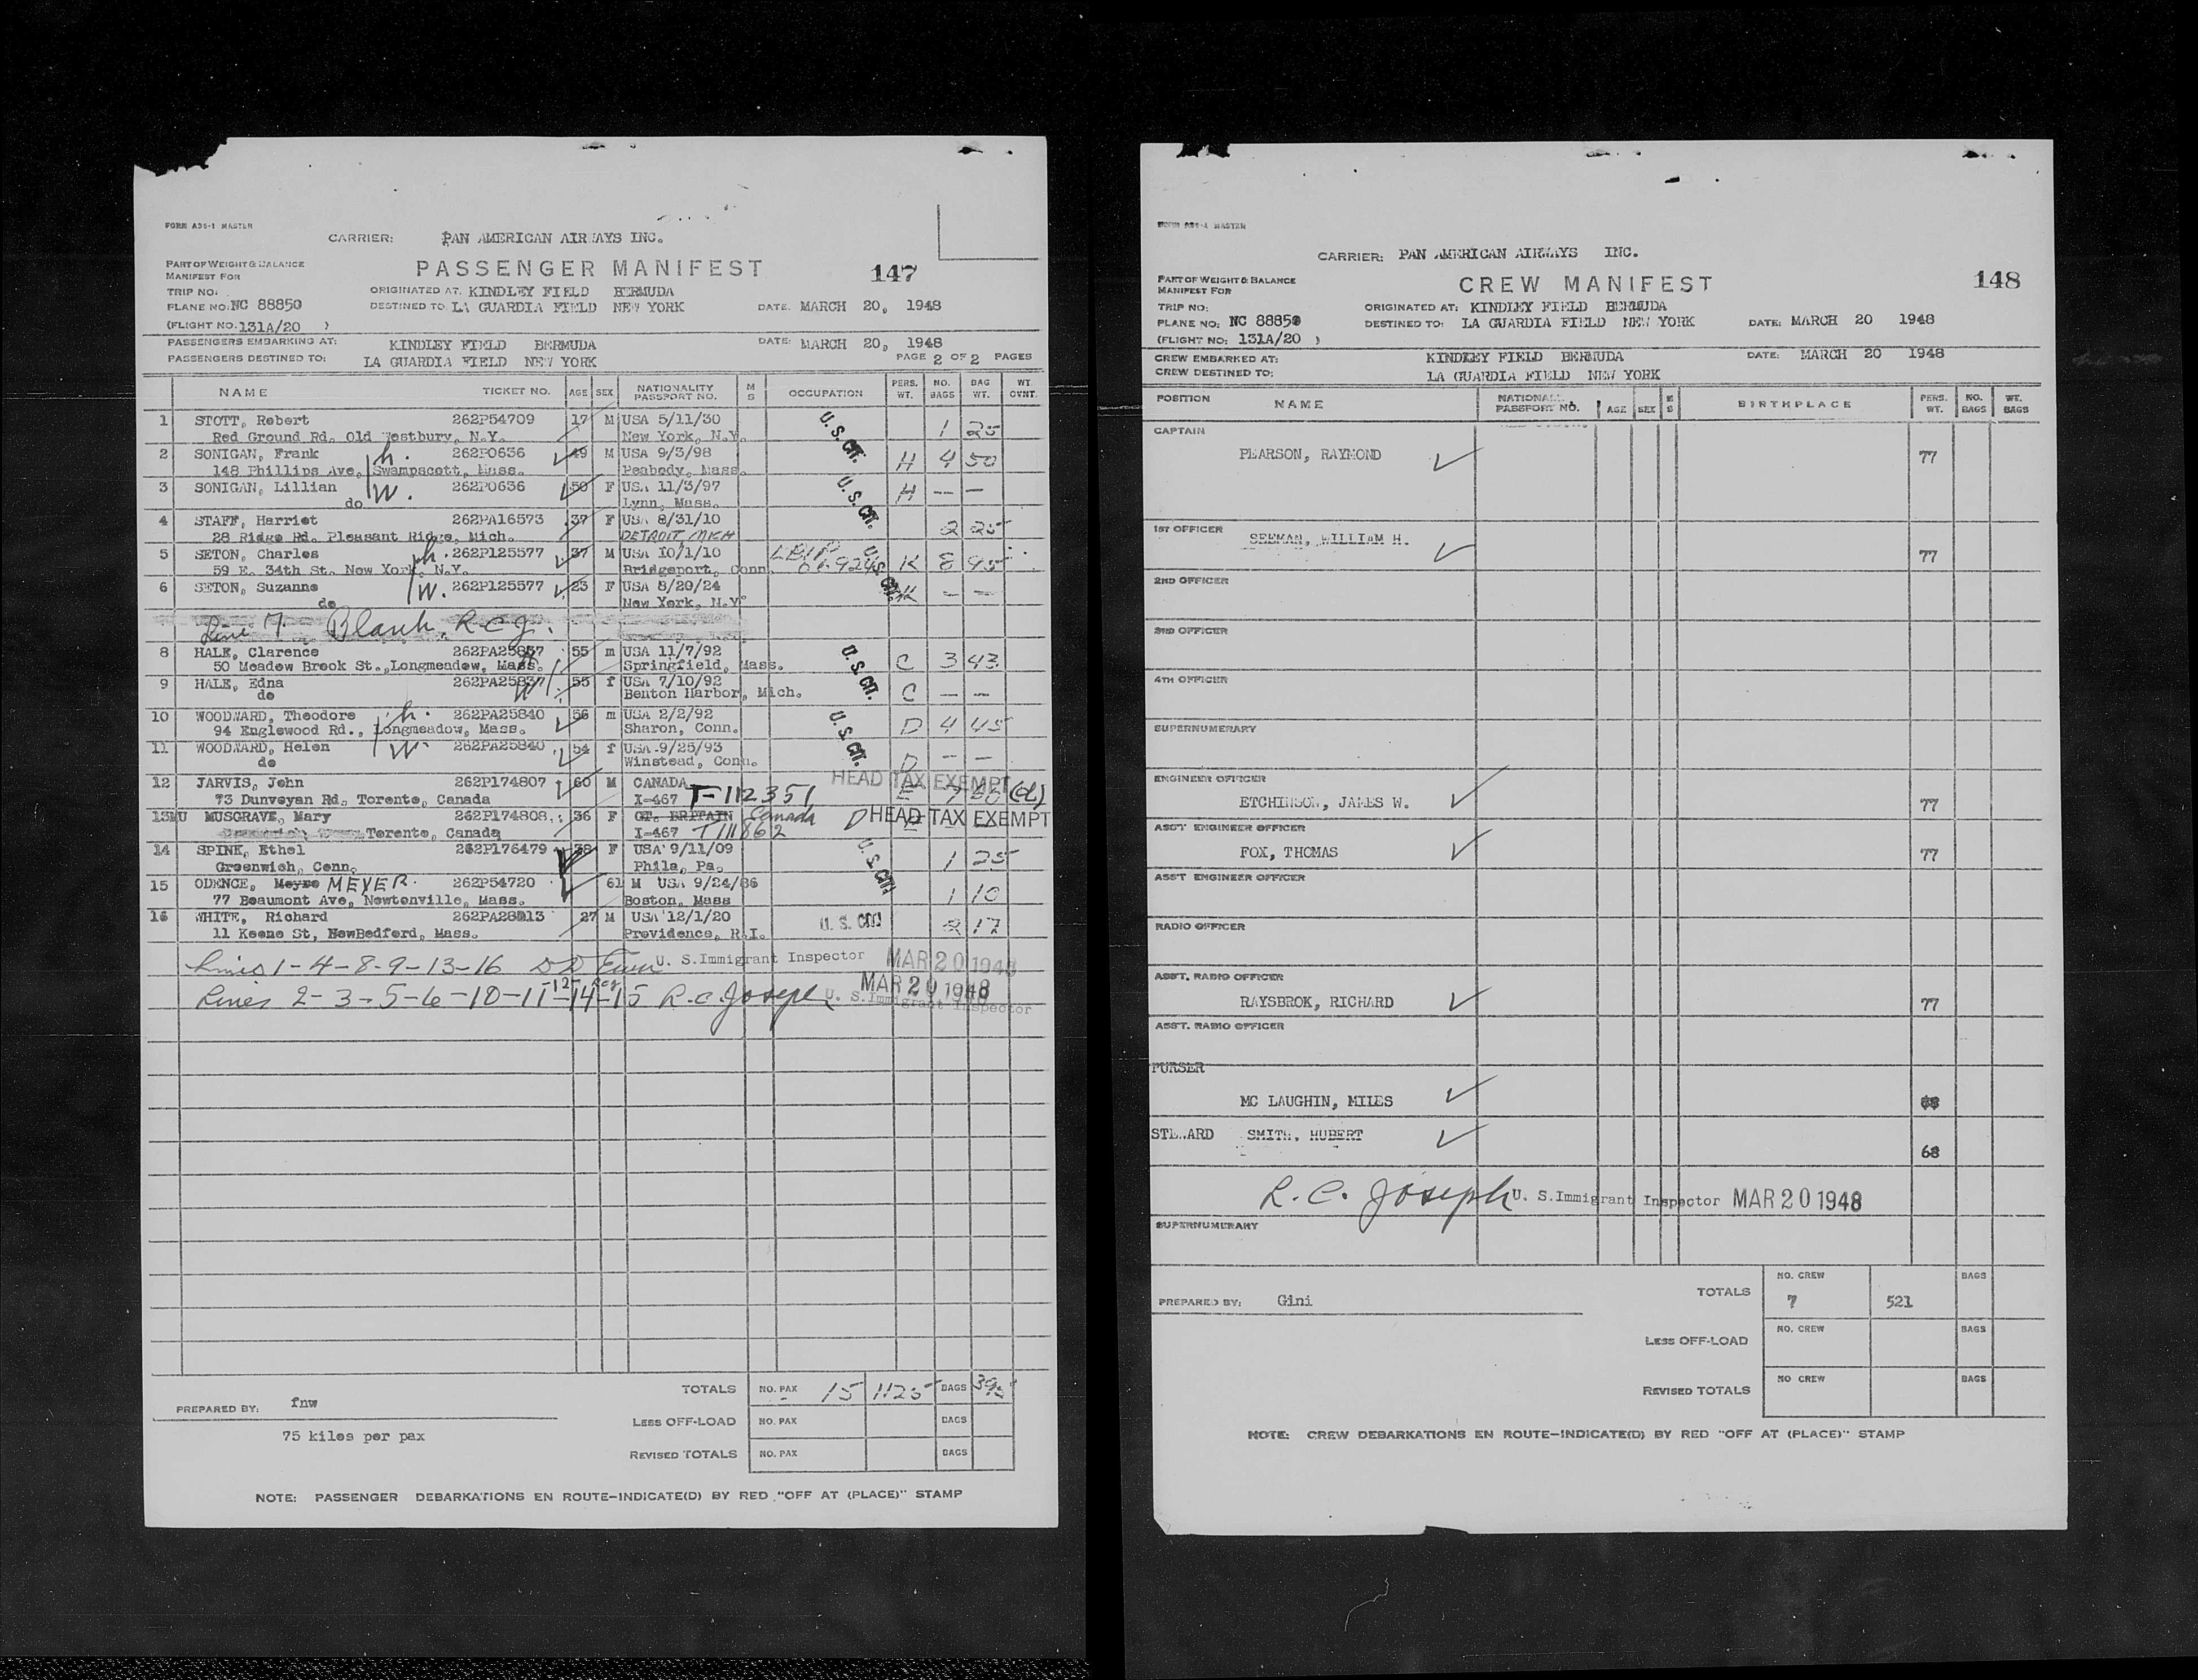 FORM A36-1 MASTER
CARRIER: PAN AMERICAN AIRWAYS INC.
PART OF WEIGHT & BALANCE
MANIFEST FOR
PASSENGER MANIFEST 147
TRIP NO:
ORIGINATED AT: KINDLEY FIELD BERMUDA
PLANE NO: NC 88850
DESTINED TO: LA GUARDIA FIELD NEW YORK DATE: MARCH 20, 1948
(FLIGHT NO. 131A/20 )
PASSENGERS EMBARKING AT: KINDLEY FIELD BERMUDA DATE: MARCH 20, 1948
PASSENGERS DESTINED TO: LA GUARDIA FIELD NEW YORK PAGE 2 OF 2 PAGES
NAME TICKET NO. AGE SEX NATIONALITY PASSPORT NO. M S OCCUPATION PERS. WT. NO. BAGS BAG WT. WT. GVNT.
1 STOTT, Robert 262P54709 17 M USA 5/11/30 U.S. CIT.
Red Ground Rd. Old Westbury, N.Y. New York, N.Y. 1 25
2 SONIGAN, Frank h. 262P0636 49 M USA 9/3/98
148 Phillips Ave, Swampscott, Mass. Peabody, Mass. H 4 50
3 SONIGAN, Lillian W. 262P0636 50 F USA 11/3/97 U.S. CIT.
do Lynn, Mass. H — —
4 STAFF, Harriet 262PA16573 37 F USA 8/31/10
28 Ridge Rd. Pleasant Ridge, Mich. DETROIT, MICH 2 25
5 SETON, Charles h. 262P125577 37 M USA 10/1/10 U.S. CIT.
59 E. 34th St. New York, N.Y. Bridgeport, Conn. K 8 95
6 SETON, Suzanne W. 262P125577 23 F USA 8/20/24
do New York, N.Y. K — —
Line 7 Blank. R.C.J.
8 HALE, Clarence 262PA25837 55 m USA 11/7/92 U.S. CIT.
50 Meadow Brook St., Longmeadow, Mass. Springfield, Mass. C 3 43
9 HALE, Edna 262PA25837 W 55 f USA 7/10/92
do Benton Harbor, Mich. C — —
10 WOODWARD, Theodore h. 262PA25840 56 m USA 2/2/92 U.S. CIT.
94 Englewood Rd., Longmeadow, Mass. Sharon, Conn. D 4 45
11 WOODWARD, Helen W. 262PA25840 54 f USA 9/25/93
do Winstead, Conn. D — —
12 JARVIS, John 262P174807 60 M CANADA HEAD TAX EXEMPT
73 Dunveyan Rd. Torente, Canada I-467 T-112351
13MU MUSGRAVE, Mary 262P174808 36 F GT. BRITAIN Canada HEAD TAX EXEMPT
Torente, Canada I-467 T111862
14 SPINK, Ethel 262P176479 38 F USA 9/11/09 U.S. CIT.
Greenwich, Conn. Phila, Pa. 1 25
15 ODENCE, Meyse MEYER 262P54720 61 M USA 9/24/86
77 Beaumont Ave, Newtonville, Mass. Boston, Mass 1 10
16 WHITE, Richard 262PA28213 27 M USA 12/1/20 U.S. CIT
11 Keene St, NewBedford, Mass. Providence, R.I. 2 17
Lines 1-4-8-9-13-16 U. S.Immigrant Inspector MAR 20 1948
Lines 2-3-5-6-10-11-12-14-15 R.C. Joseph U. S.Immigrant Inspector MAR 20 1948
TOTALS NO. PAX 15 1125 BAGS 395
PREPARED BY: fnw
LESS OFF-LOAD NO. PAX BAGS
75 kilos per pax
REVISED TOTALS NO. PAX BAGS
NOTE: PASSENGER DEBARKATIONS EN ROUTE-INDICATE(D) BY RED "OFF AT (PLACE)" STAMP
FORM A36-1 MASTER
CARRIER: PAN AMERICAN AIRWAYS INC.
PART OF WEIGHT & BALANCE
MANIFEST FOR
CREW MANIFEST 148
TRIP NO:
ORIGINATED AT: KINDLEY FIELD BERMUDA
PLANE NO: NC 88850
DESTINED TO: LA GUARDIA FIELD NEW YORK DATE: MARCH 20 1948
(FLIGHT NO: 131A/20 )
CREW EMBARKED AT: KINDLEY FIELD BERMUDA DATE: MARCH 20 1948
CREW DESTINED TO: LA GUARDIA FIELD NEW YORK
POSITION NAME NATIONAL. PASSPORT NO. AGE SEX M S BIRTHPLACE PERS. WT. NO. BAGS WT. BAGS
CAPTAIN
PEARSON, RAYMOND 77
1ST OFFICER
SEEMAN, WILLIAM H. 77
2ND OFFICER
3RD OFFICER
4TH OFFICER
SUPERNUMERARY
ENGINEER OFFICER
ETCHINSON, JAMES W. 77
ASST ENGINEER OFFICER
FOX, THOMAS 77
ASST ENGINEER OFFICER
RADIO OFFICER
ASST. RADIO OFFICER
RAYSBROK, RICHARD 77
ASST. RADIO OFFICER
PURSER
MC LAUGHIN, MILES 68
STEWARD SMITH, HUBERT
68
R. C. Joseph U. S.Immigrant Inspector MAR 20 1948
SUPERNUMERARY
TOTALS NO. CREW 7 521 BAGS
PREPARED BY: Gini
LESS OFF-LOAD NO. CREW BAGS
REVISED TOTALS NO CREW BAGS
NOTE: CREW DEBARKATIONS EN ROUTE-INDICATE(D) BY RED "OFF AT (PLACE)" STAMP